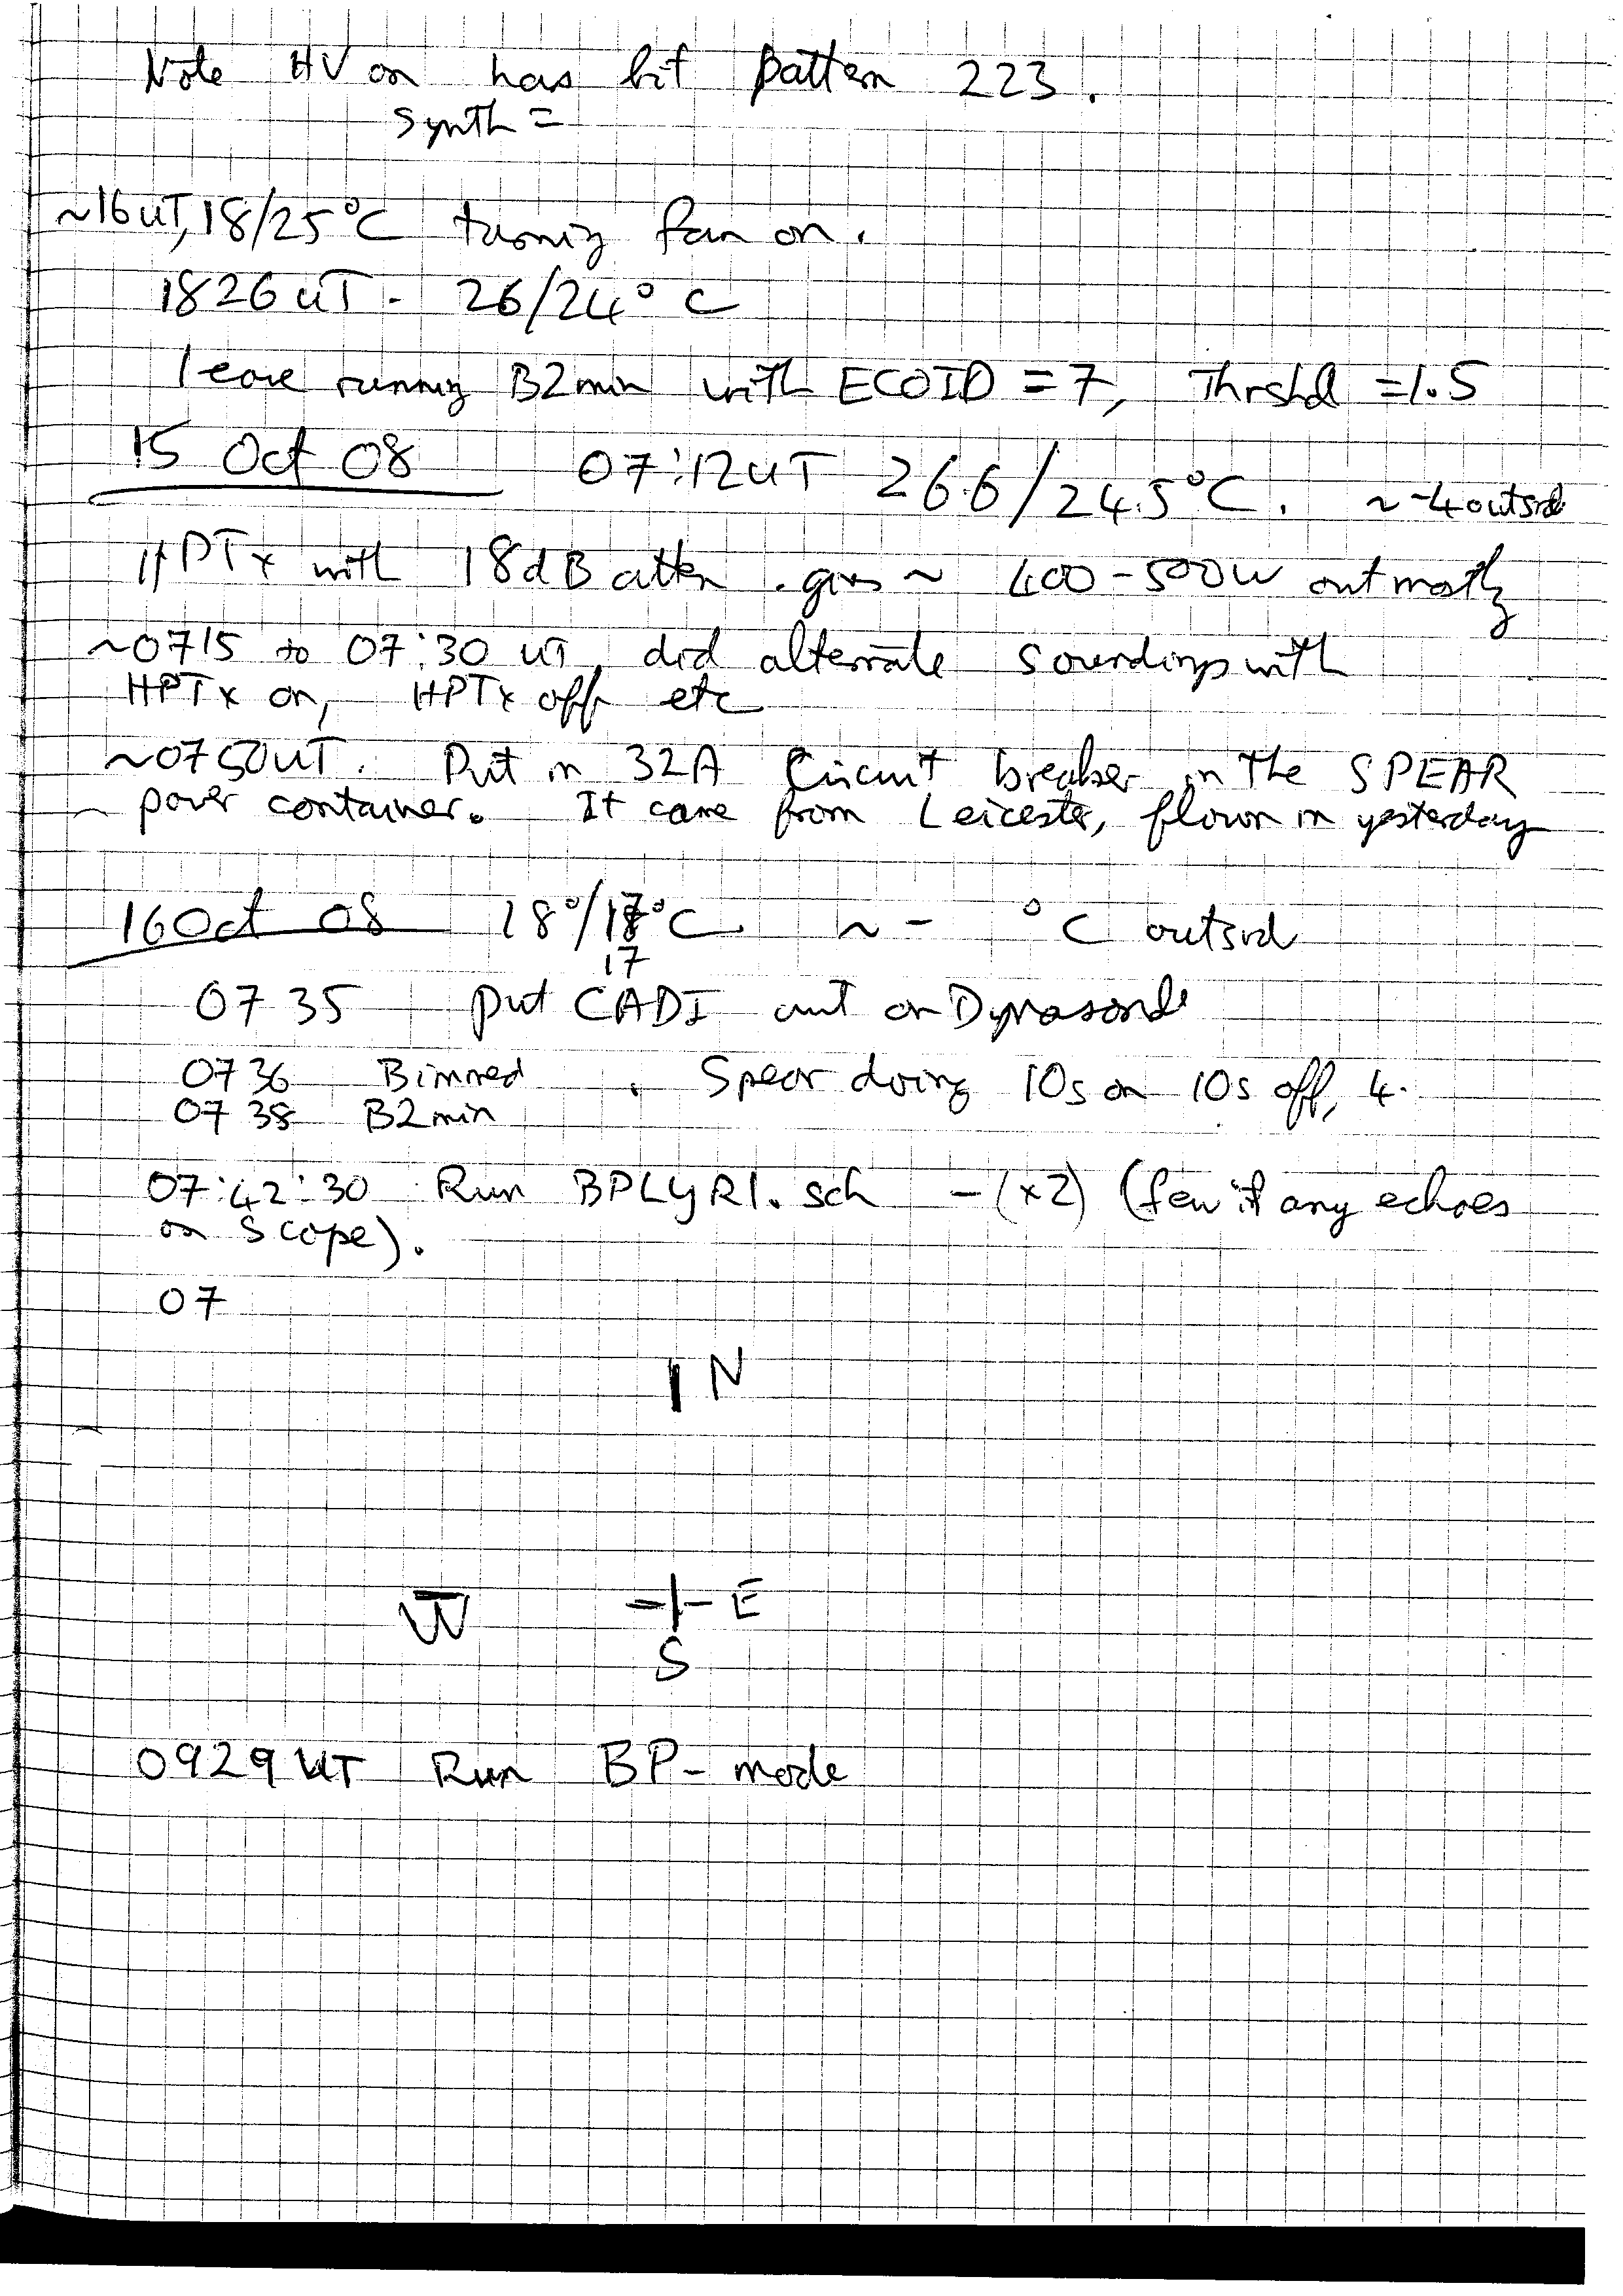 Note HV on has bit pattern 223.
synth =
~16UT, 18/25°C turning fan on.
1826 UT - 26/24°C
leave running B2min with ECOID = 7, Thrshd = 1.5
15 Oct 08 07:12UT 26.6/24.5°C. ~ -4 outsid
HPTx with 18dB atten. gives ~ 400-500W out mostly
~0715 to 07:30 UT, did alternate soundings with
HPTx on, HPTx off etc
~0750UT. Put in 32A Circuit breaker in the SPEAR
power container. It came from Leicester, flown in yesterday
16 Oct 08 18°/17°C. ~ - °C outsid
17
0735 put CADI ant on Dynasonde
0736 Bimred . Spear doing 10s on 10s off, 4.
0738 B2min
07:42:30 Run BPLYR1.sch - (x2) (few if any echoes
on Scope).
07
N
W E
S
0929 UT Run BP-mode